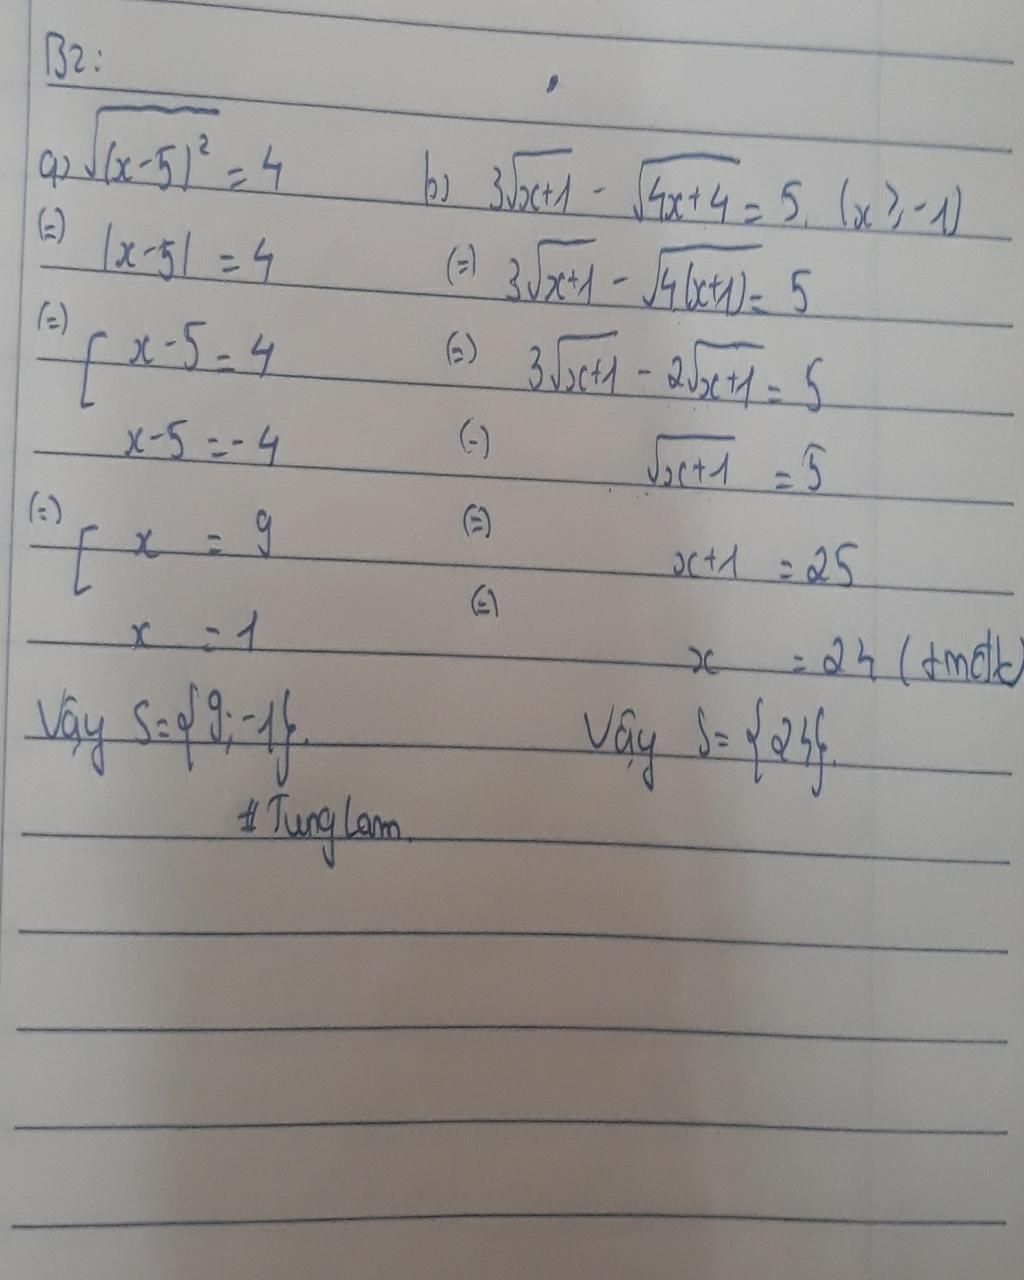 B2:
a) √(x-5)² = 4
(=) |x-5| = 4
(=) [ x-5 = 4
x-5 = -4
(=) [ x = 9
x = 1
Vậy S={9;-1}.
b) 3√x+1 - √4x+4 = 5. (x ≥ -1)
(=) 3√x+1 - √4(x+1) = 5
(=) 3√x+1 - 2√x+1 = 5
(=) √x+1 = 5
(=) x+1 = 25
(=) x = 24 (tmđk)
Vậy S={24}.
#TungLam.